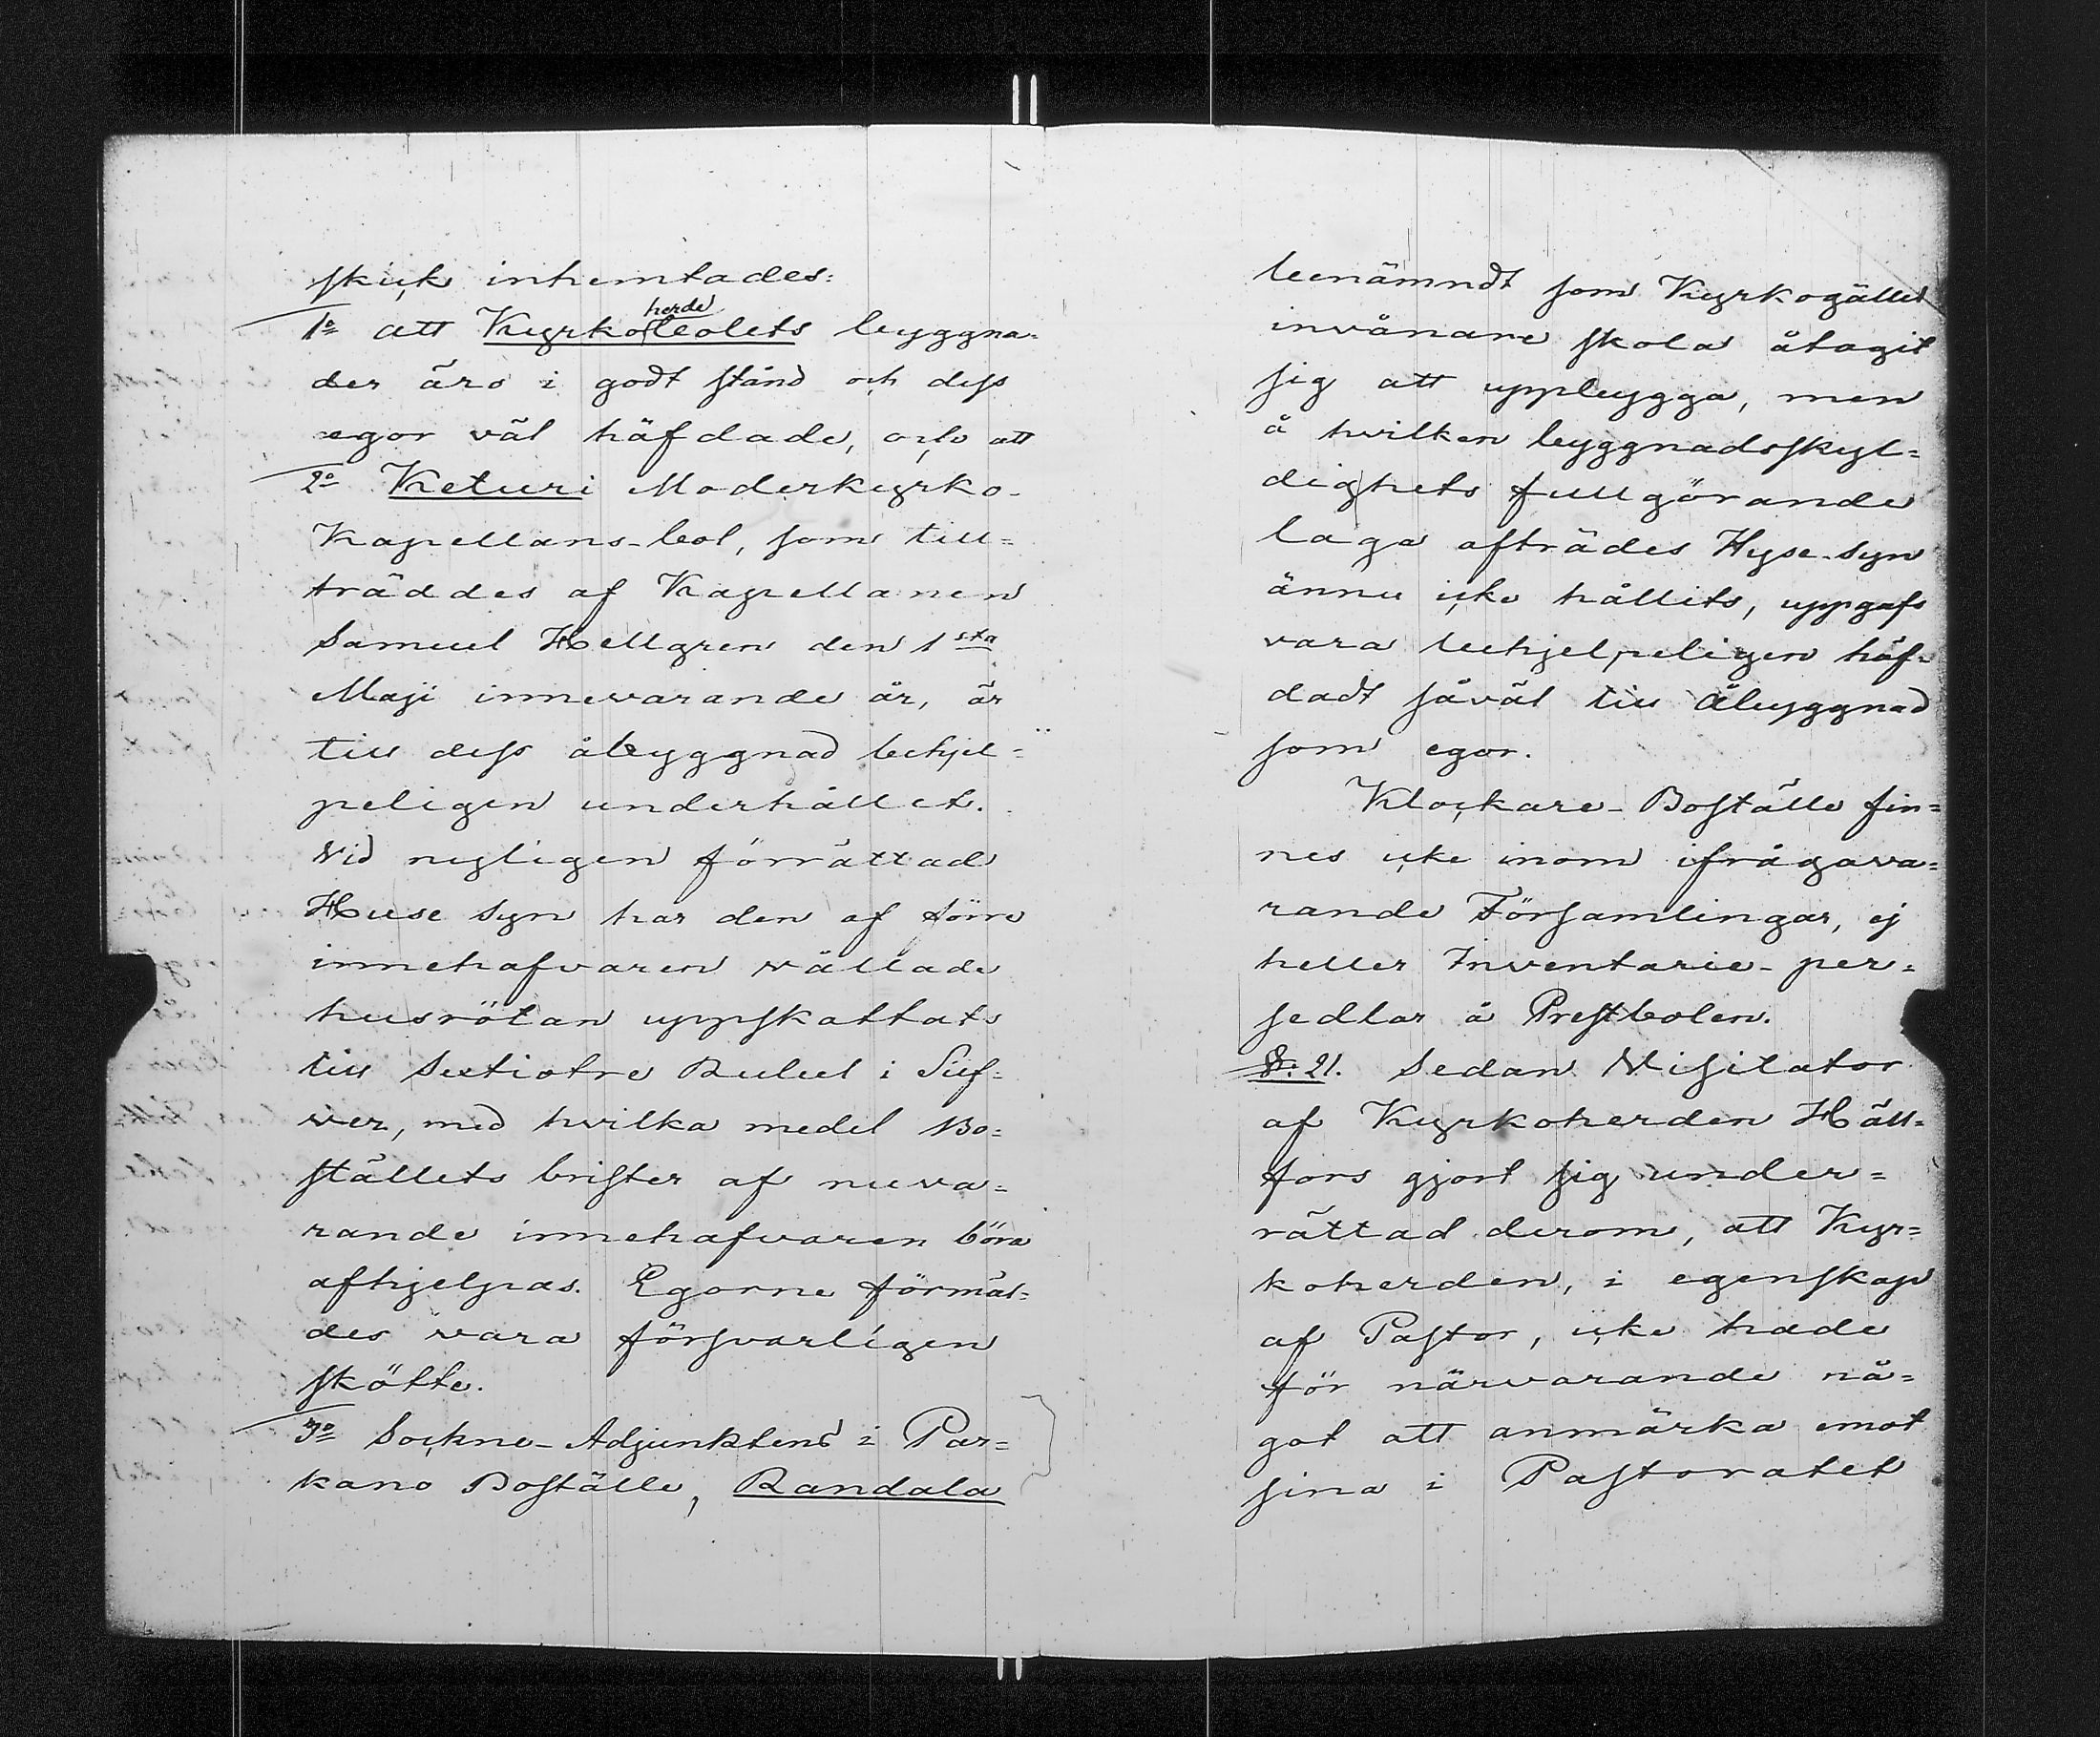 skick inhemtades:
1o att Kyrkoherdebolets byggna-
der äro i godt stånd och dess
egor väl häfdade, och att
2o Keturi Moderkyrko-
Kapellans-bol, som till=
träddes af Kapellanen
Samuel Hellgren den 1sta
Maji innevarande år, är
till dess åbyggnad behjel=
peligen underhållet.
Vid nyligen förrättad
Huse syn har den af förre
innehafvaren vållade
husrötan uppskattats
till Sextiotre Rubel i Silf=
ver, med hvilka medel Bo=
ställets brister af nuva=
rande innehafvaren böra
afhjelpas. Egorne förmäl=
des vara försvarligen
skötte.
3o Sockne-Adjunktens i Par=
kano Boställe, Randala
benämndt som Kyrkogället
invånare skola åtagit
sig att uppbygga, men
å hvilken byggnadsskyl=
dighets fullgörande
laga afträdes Hyse-syn
ännu icke hållits, uppgafs
vara behjelpeligen häf=
dadt såväl till Åbyggnad
som egor.
Klockare-Boställe fin=
nes icke inom ifrågava=
rande Församlingar, ej
heller Inventarie-per=
sedlar å Prestbolen.
§. 21. Sedan Visitator
af Kyrkoherden Häll=
fors gjort sig under=
rättad derom, att Kyr=
koherden, i egenskap
af Pastor, icke hade
för närvarande nå=
got att anmärka emot
sina i Pastoratet